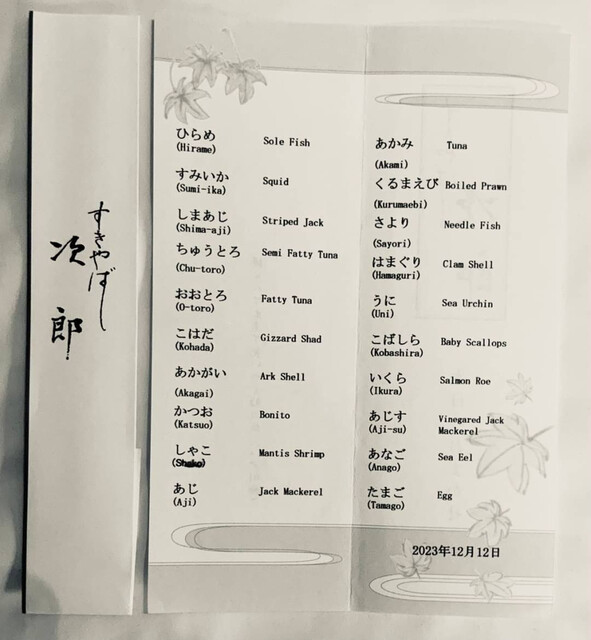 すきやばし
次郎
ひらめ
(Hirame)
Sole Fish
すみいか
(Sumi-ika)
Squid
しまあじ
(Shima-aji)
Striped Jack
ちゅうとろ
(Chu-toro)
Semi Fatty Tuna
おおとろ
(O-toro)
Fatty Tuna
こはだ
(Kohada)
Gizzard Shad
あかがい
(Akagai)
Ark Shell
かつお
(Katsuo)
Bonito
しゃこ
(Shako)
Mantis Shrimp
あじ
(Aji)
Jack Mackerel
あかみ
(Akami)
Tuna
くるまえび
(Kurumaebi)
Boiled Prawn
さより
(Sayori)
Needle Fish
はまぐり
(Hamaguri)
Clam Shell
うに
(Uni)
Sea Urchin
こばしら
(Kobashira)
Baby Scallops
いくら
(Ikura)
Salmon Roe
あじす
(Aji-su)
Vinegared Jack
Mackerel
あなご
(Anago)
Sea Eel
たまご
(Tamago)
Egg
2023年12月12日